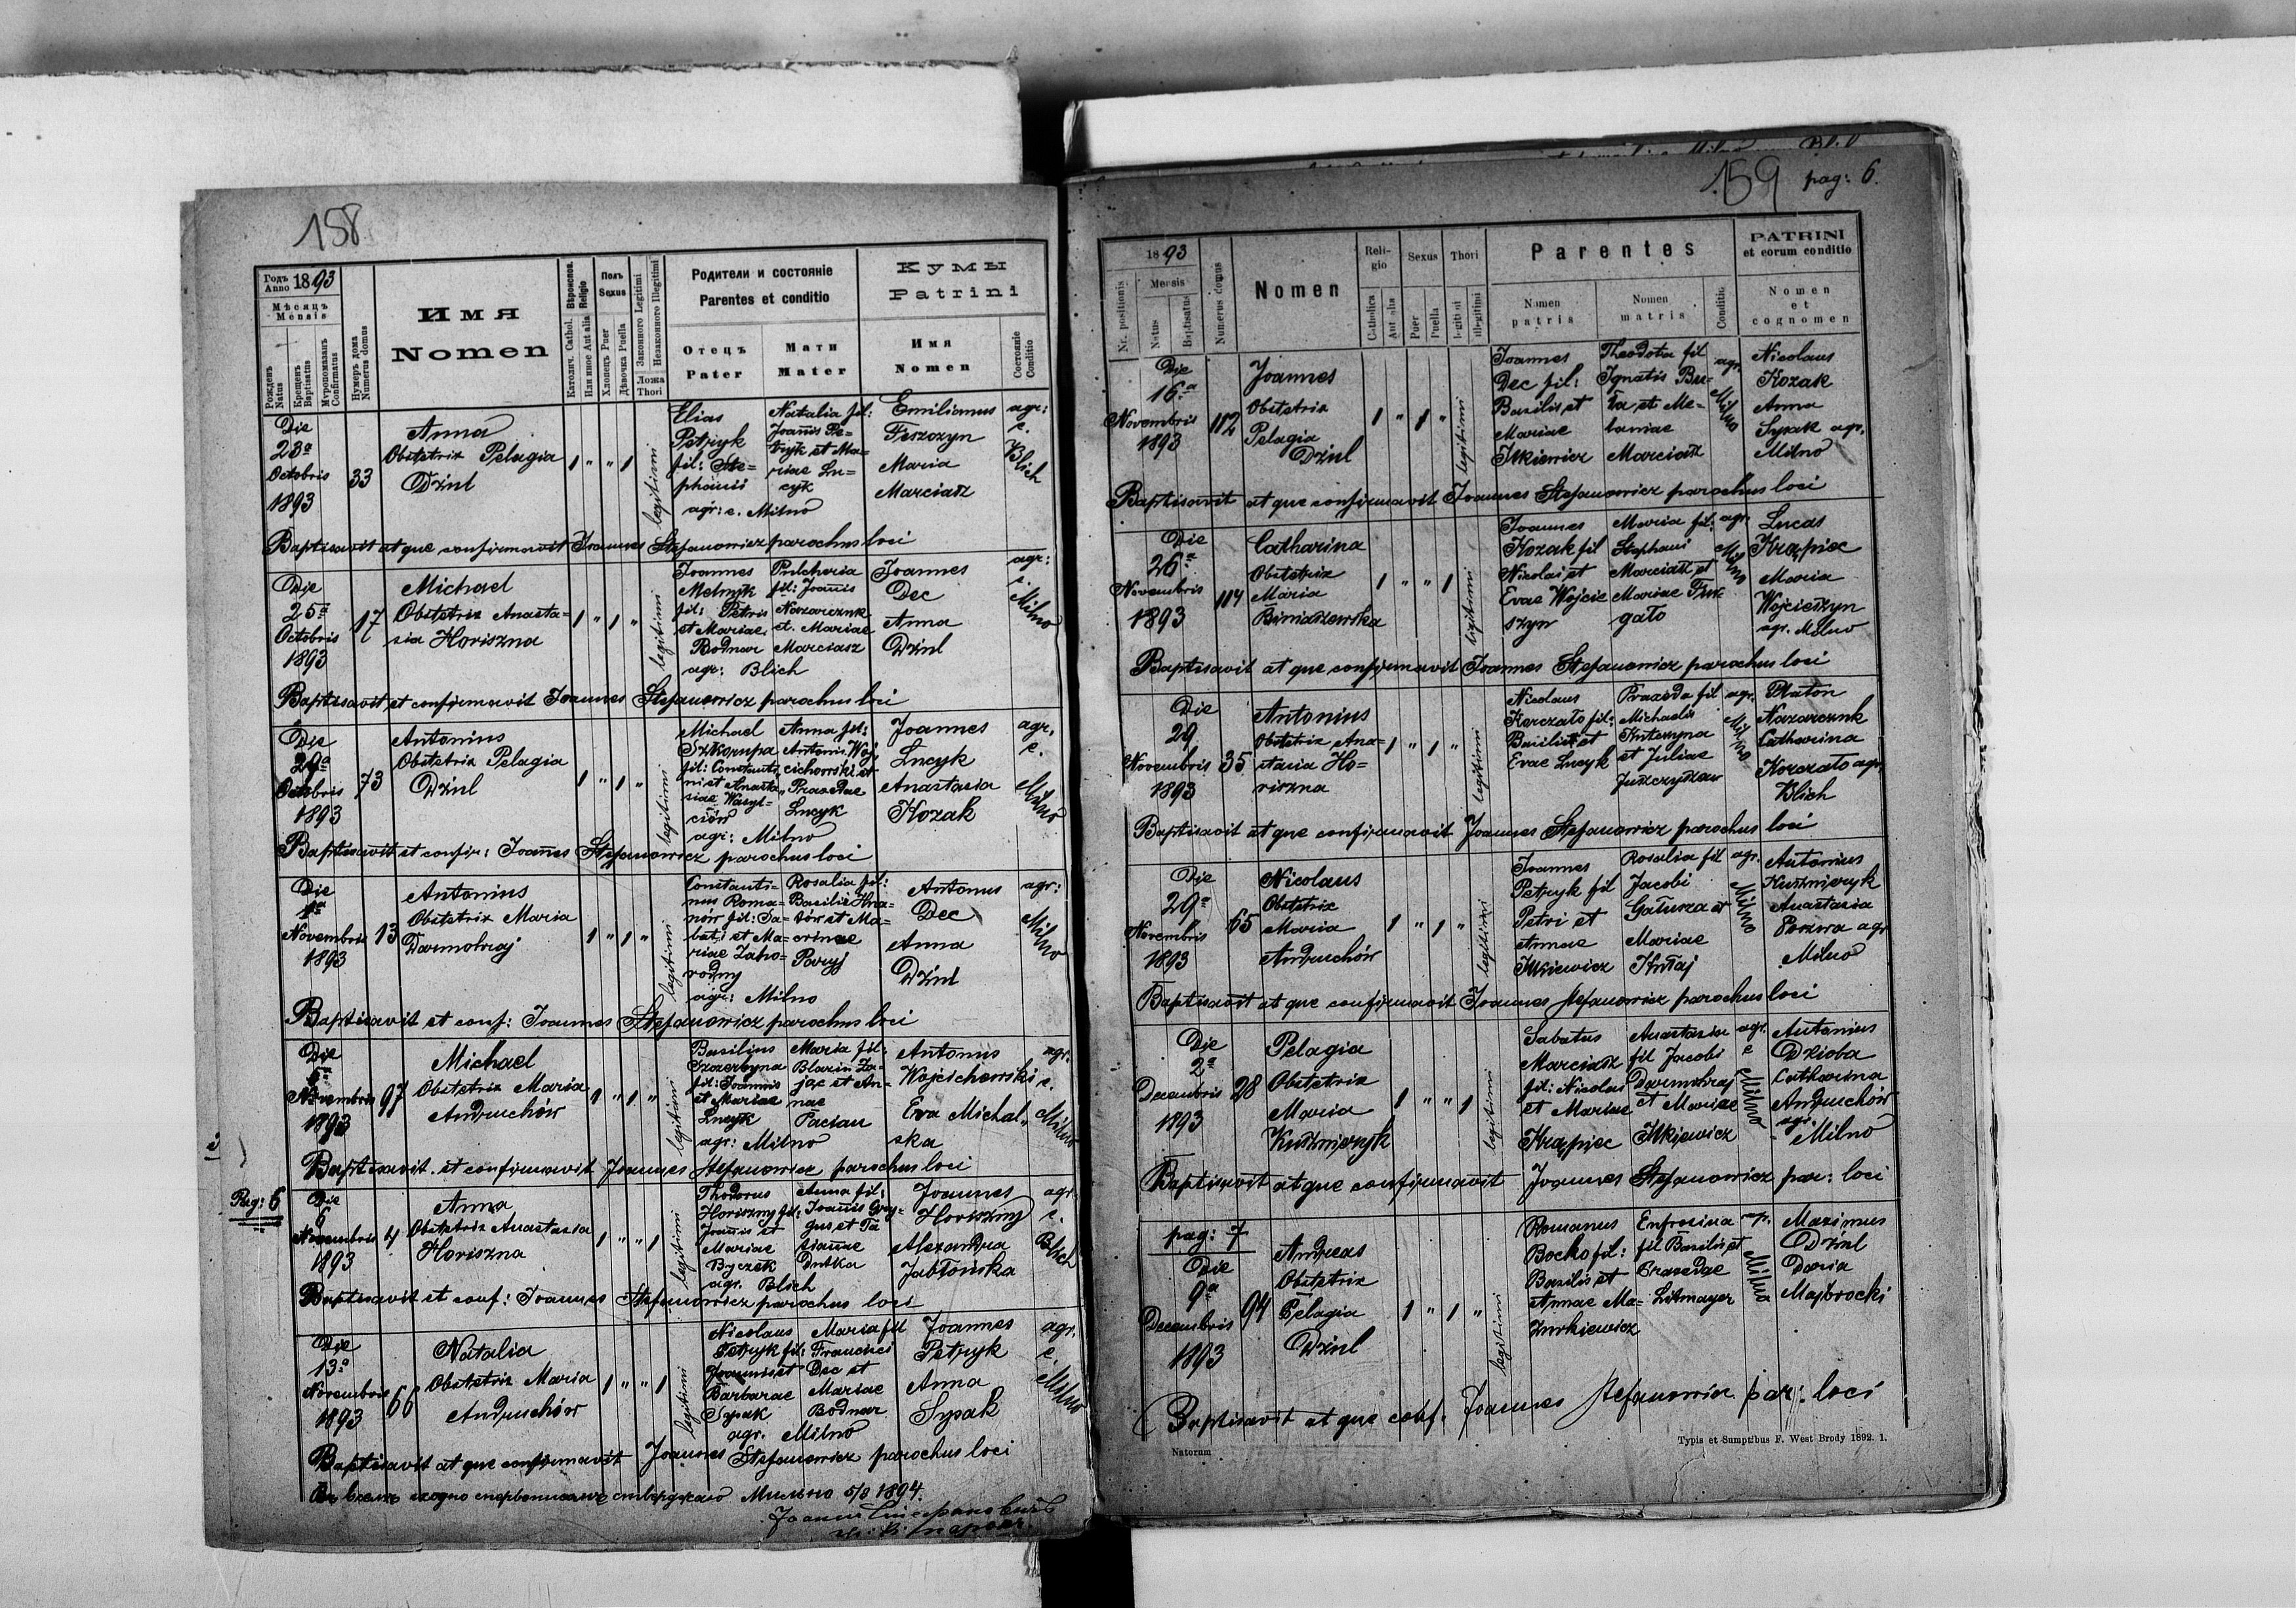 158
Годъ Anno 1893
Мѣсяцъ Mensis
Рожденъ Natus
Крещенъ Baptisatus
Муропомазанъ Confirmatus
Нумеръ дома Numerus domus
Имя
Nomen
Вѣроиспов. Religio
Католич. Cathol.
Или иное Aut alia
Полъ Sexus
Хлопецъ Puer
Дѣвочка Puella
Законного Legitimi
Незаконного Illegitimi
Ложа Thori
Родители и состоянie
Parentes et conditio
Отецъ Pater
Мати Mater
Кумы
Patrini
Имя Nomen
Состоянie Conditio
Die 23ª Octobris 1893
33
Anna
Obstetrix Pelagia
Dziul
1 " " 1
legitimi
Elias Petryk fil: Stephanii
Natalia fil: Joañis Petryk et Mariae Lucyk
agr: c. Milno
Emilianus
Feszczyn
Maria
Marciasz
agr: c. Blich
Baptisavit atque confirmavit Joannes Stefanowicz parochus loci
Die 25ª Octobris 1893
17
Michael
Obstetrix Anastasia Horiszna
1 " 1 "
legitimi
Joannes Melnyk fil: Petris et Mariae Bodnar
Pulcheria fil: Joañis Nazarczuk et Mariae Marciasz
agr: Blich
Joannes
Dec
Anna
Dziul
agr: c. Milno
Baptisavit et confirmavit Joannes Stefanowicz parochus loci
Die 29ª Octobris 1893
73
Antonius
Obstetrix Pelagia
Dziul
1 " 1 "
legitimi
Michael Szkorupa fil: Constantini et Anastasiae Wasylciów
Anna fil: Antonii Wojcichowski et Praxedae Lucyk
agr: Milno
Joannes
Lucyk
Anastasia
Kozak
agr. c. Milno
Baptisavit et confir: Joañes Stefanowicz parochus loci
Die 1ª Novembris 1893
13
Antonius
Obstetrix Maria
Darmohraj
1 " 1 "
legitimi
Constantinus Romanów fil: Sabati et Mariae Zahorodny
Rosalia fil: Basilii Hnatów et Macrinae Paryj
agr: Milno
Antonius
Dec
Anna
Dziul
agr: Milno
Baptisavit et conf: Joannes Stefanowicz parochus loci
Die 5ª Novembris 1893
97
Michael
Obstetrix Maria
Andruchów
1 " 1 "
legitimi
Basilius Szczerbyna fil: Joannis et Mariae Lucyk
Maria fil: Blazii Zajac et Annae Pacian
agr: Milno
Antonius
Wojcichowski
Eva Michalska
agr. c. Milno
Baptisavit et confirmavit Joannes Stefanowicz parochus loci
Pag: 6
Die 6 Novembris 1893
4
Anna
Obstetrix Anastasia
Horiszna
1 " " 1
legitimi
Thodorus Horiszny fil: Joañis et Mariae Byczek
Anna fil: Joañis Grygus et Tatiannae Dutka
agr. Blich
Joannes
Horiszny
Alexandra
Jabłońska
agr. c. Blich
Baptisavit et conf: Joannes Stefanowicz parochus loci
Die 13ª Novembris 1893
66
Natalia
Obstetrix Maria
Andruchów
1 " " 1
legitimi
Nicolaus Petryk fil: Joannis et Barbarae Sysak
Maria fil Francisci Dec et Mariae Bodnar
agr. Milno
Joannes
Petryk
Anna
Sysak
agr. c. Milno
Baptisavit atque confirmavit Joannes Stefanowicz parochus loci
Мильно 5/3 1894.
159
pag: 6.
1893
Nr. positionis
Mensis
Natus
Baptisatus
Numerus domus
Nomen
Religio
Catholica
Aut alia
Sexus
Puer
Puella
Thori
legitimi
illegitimi
Parentes
Nomen patris
Nomen matris
Conditio
PATRINI
et eorum conditio
Nomen et cognomen
Die 16ª Novembris 1893
112
Joannes
Obstetrix
Pelagia
Dziul
1 " 1 "
legitimi
Joannes Dec fil: Basilii et Mariae Ilkiewicz
Theodota fil Ignatii Buta et Melaniae Marciasz
agr. Milno
Nicolaus
Kozak
Anna
Sysak agr.
Milno
Baptisavit atque confirmavit Joannes Stefanowicz parochus loci
Die 26ª Novembris 1893
114
Catharina
Obstetrix
Maria
Biniaszewska
1 " " 1
legitimi
Joannes Kozak fil Nicolai et Evae Wojcieszyn
Maria fil: Stephani Marciasz et Mariae Fiurgato
agr. Milno
Lucas
Krąpiec
Maria
Wojcieszyn
agr. Milno
Baptisavit atque confirmavit Joannes Stefanowicz parochus loci
Die 29 Novembris 1893
35
Antonius
Obstetrix Anastasia Horiszna
1 " 1 "
legitimi
Nicolaus Korczało fil: Basilii et Evae Lucyk
Praxeda fil Michaelis Kuternyna et Juliae Juszczyszen
agr. Milno
Platon
Nazarczuk
Catharina
Korczało agr.
Blich
Baptisavit atque confirmavit Joannes Stefanowicz parochus loci
Die 29ª Novembris 1893
65
Nicolaus
Obstetrix
Maria
Andruchów
1 " 1 "
legitimi
Joannes Petryk fil Petri et Annae Ilkiewicz
Rosalia fil Jacobi Gałuszka et Mariae Hułaj
agr. Milno
Antonius
Kuśnieryk
Anastasia
Porzwa agr
Milno
Baptisavit atque confirmavit Joannes Stefanowicz parochus loci
Die 2ª Decembris 1893
28
Pelagia
Obstetrix
Maria
Kuśnierzyk
1 " " 1
legitimi
Sabatus Marciasz fil: Nicolai et Mariae Krąpiec
Anastasia fil Jacobi Darmohraj et Mariae Ilkiewicz
agr. c Milno
Antonius
Dzioba
Catharina
Andruchów
agr. Milno
Baptisavit atque confirmavit Joannes Stefanowicz par: loci
pag: 7
Die 9ª Decembris 1893
94
Andreas
Obstetrix
Pelagia
Dziul
1 " 1 "
legitimi
Romanus Bočko fil: Basilii et Annae Mazurkiewicz
Eufrosina fil Basilii et Praxedae Litmayer
agr. Milno
Maximus
Dziul
Daria
Majbrocki
Baptisavit atque conf. Joannes Stefanowicz par: loci
Natorum
Typis et Sumptibus F. West Brody 1892. 1.